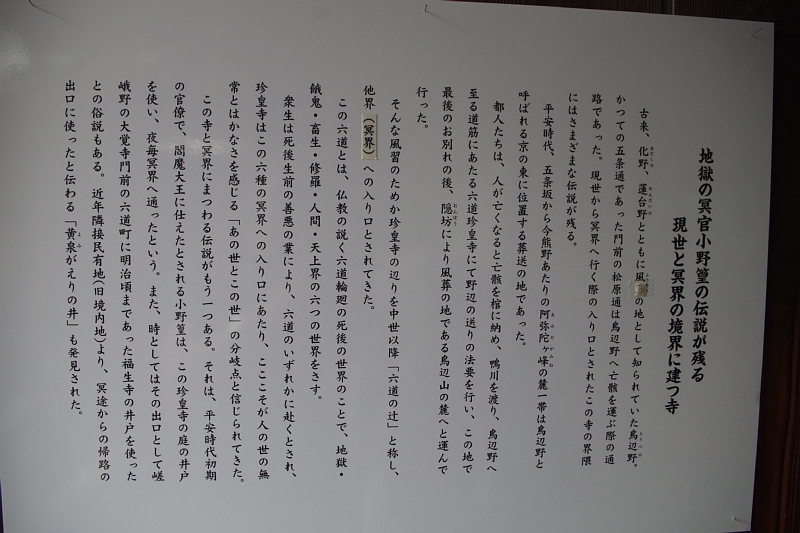 地獄の冥官小野篁の伝説が残る
現世と冥界の境界に建つ寺
古来、化野、蓮台野とともに風の地として知られていた鳥辺野。
かつての五条通であった門前の松原通は鳥辺野へ亡骸を運ぶ際の通
路であった。現世から冥界へ行く際の入り口とされたこの寺の界隈
にはさまざまな伝説が残る。
平安時代、五条坂から今熊野あたりの阿弥陀ヶ峰の麓一帯は鳥辺野と
呼ばれる京の東に位置する葬送の地であった。
都人たちは、人が亡くなると亡骸を棺に納め、鴨川を渡り、鳥辺野へ
至る道筋にあたる六道珍皇寺にて野辺の送りの法要を行い、この地で
最後のお別れの後、隠坊により風葬の地である鳥辺山の麓へと運んで
行った。
そんな風習のためか珍皇寺の辺りを中世以降「六道の辻」と称し、
他界(冥界)への入り口とされてきた。
この六道とは、仏教の説く六道輪廻の死後の世界のことで、地獄・
餓鬼・畜生・修羅・人間・天上界の六つの世界をさす。
衆生は死後生前の善悪の業により、六道のいずれかに赴くとされ、
珍皇寺はこの六種の冥界への入り口にあたり、こここそが人の世の無
常とはかなさを感じる「あの世とこの世」の分岐点と信じられてきた。
この寺と冥界にまつわる伝説がもう一つある。それは、平安時代初期
の官僚で、閻魔大王に仕えたとされる小野篁は、この珍皇寺の庭の井戸
を使い、夜毎冥界へ通ったという。また、時としてはその出口として嵯
峨野の大覚寺門前の六道町に明治頃まであった福生寺の井戸を使った
との俗説もある。近年隣接民有地(旧境内地)より、冥途からの帰路の
出口に使ったと伝わる「黄泉がえりの井」も発見された。